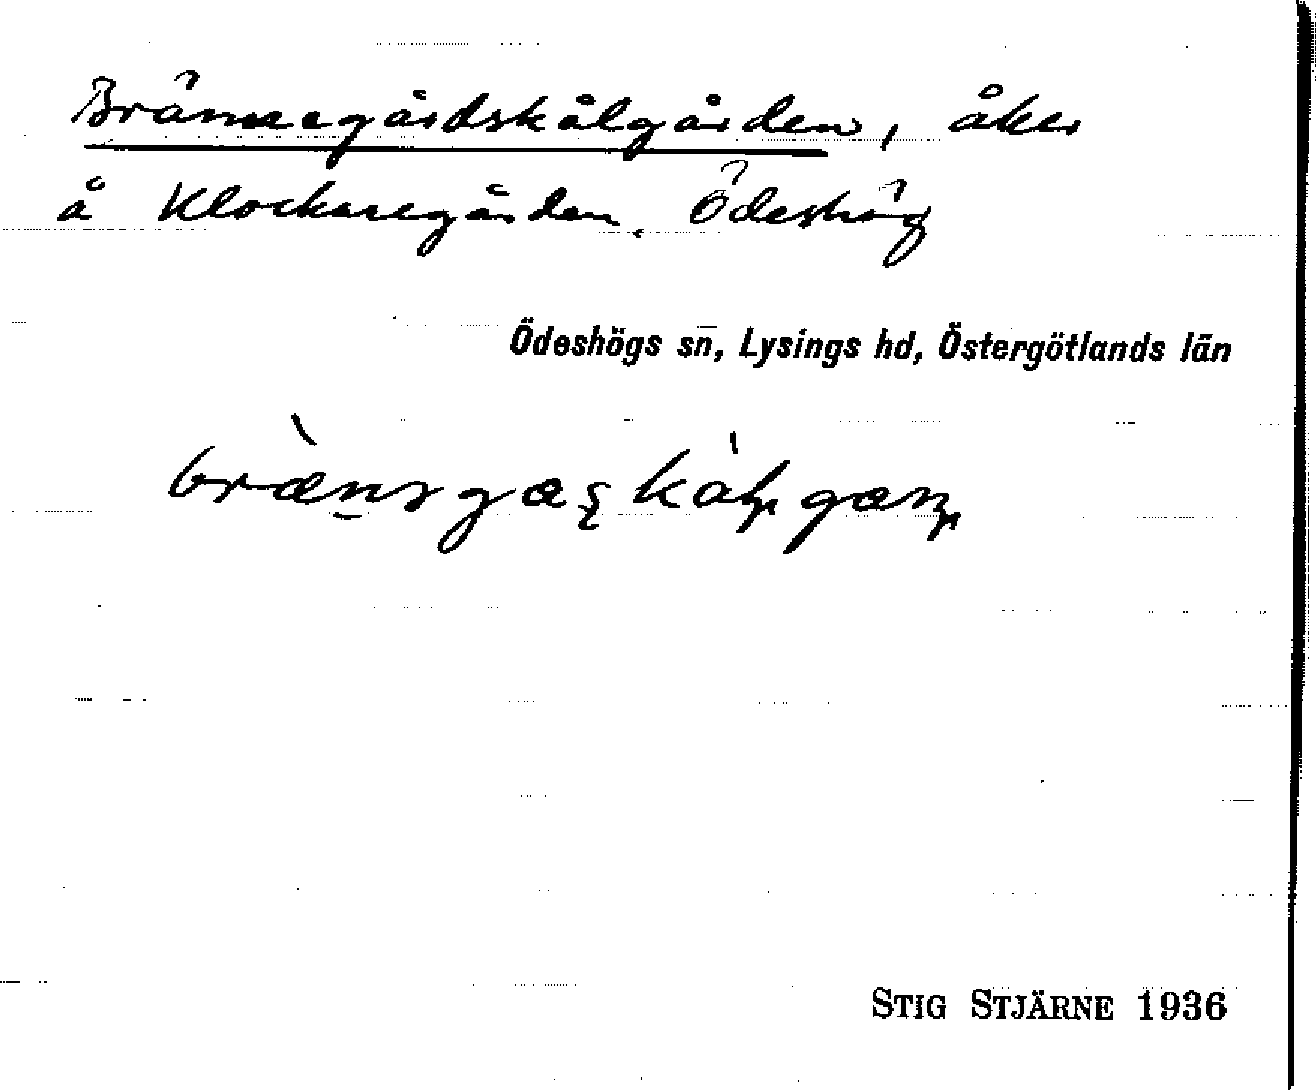 Brännegårdskålgården, åker
å Klockaregården, Ödeshög
Ödeshögs sn, Lysings hd, Östergötlands län
STIG STJÄRNE 1936